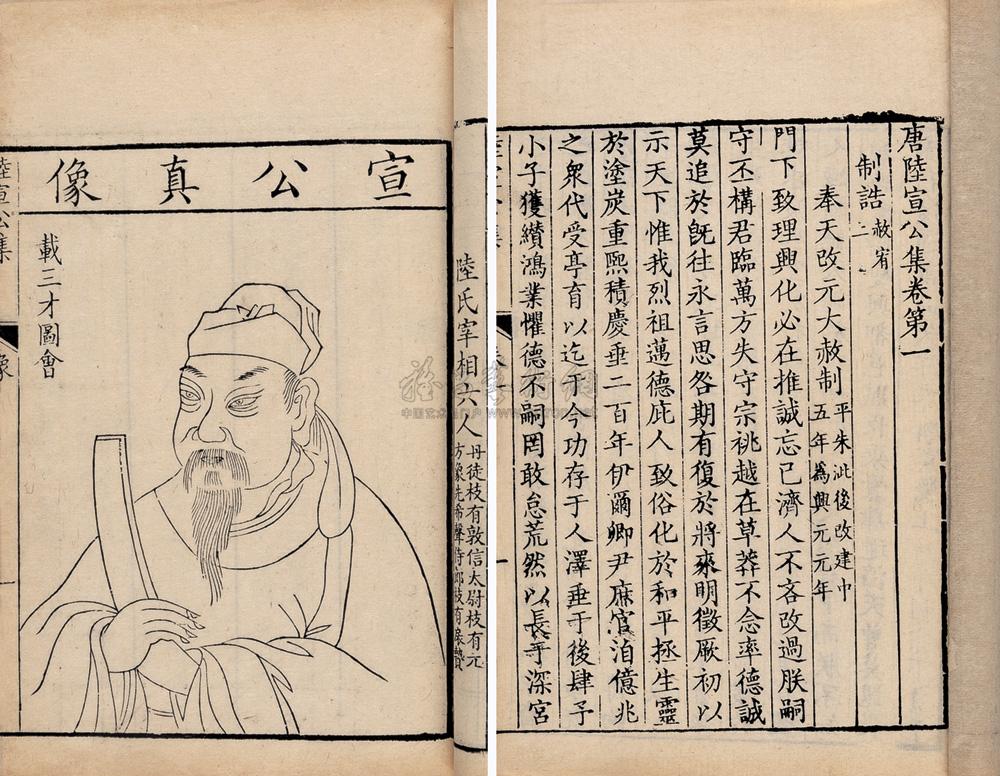 唐陸宣公集卷第一
制誥 赦宥
二
奉天改元大赦制 平朱泚後改建中
五年爲興元元年
門下致理興化必在推誠忘已濟人不吝改過朕嗣
守丕構君臨萬方失守宗祧越在草莽不念率德誠
莫追於旣往永言思咎期有復於將來明徵厥初以
示天下惟我烈祖邁德庇人致俗化於和平拯生靈
於塗炭重熙積慶垂二百年伊爾卿尹庶官洎億兆
之衆代受亭育以迄于今功存于人澤垂于後肆予
小子獲纘鴻業懼德不嗣罔敢怠荒然以長于深宮
陸氏宰相六人 丹徒枝有敦信太尉枝有元
方象先希聲侍郎枝有扆贄
宣公真像
載三才圖會
陸宣公集
像